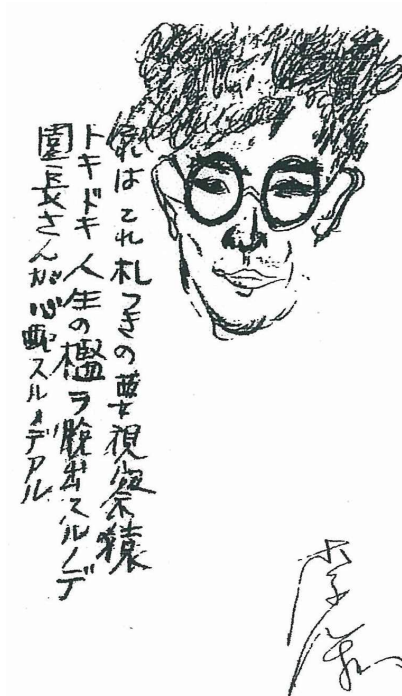 はこれ札つきの要視察猿
トキドキ人生の檻ヲ脱出スルノデ
園長さんが心配スルノデアル